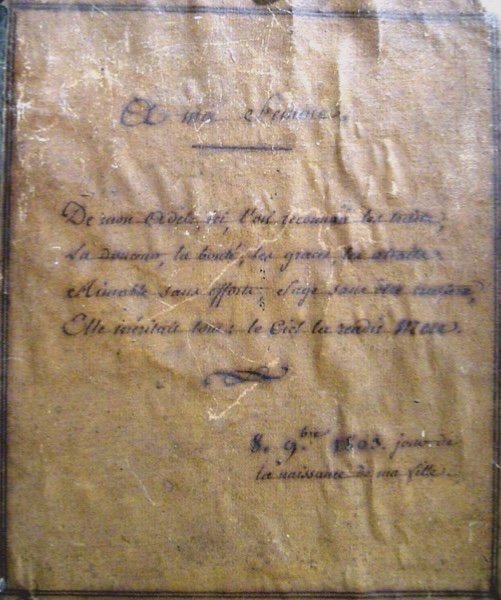 A ma Femme.
De mon Adèle, ici, l'œil reconnaît les traits,
La douceur, la bonté, les graces, les attraits:
Aimable sans efforts, Sage sans être
Elle méritait tout: le Ciel la rendit Mere.
8. 9.bre 1803. jour de
la naissance de ma fille.